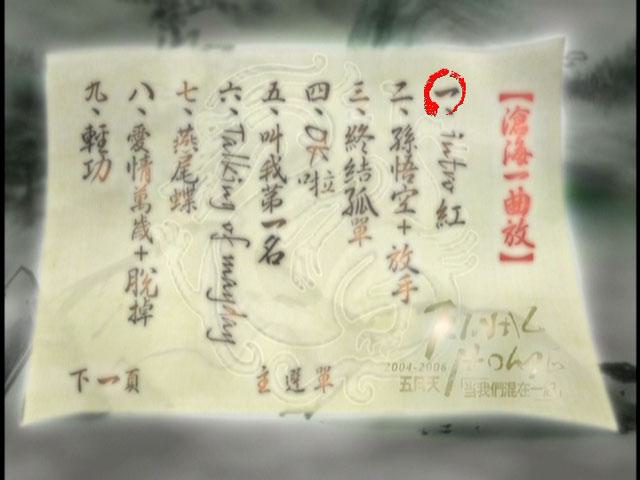 【滄海一曲放】
一、intro 紅
二、孫悟空+放手
三、終結孤單
四、OK啦
五、叫我第一名
六、Talking of mayday
七、燕尾蝶
八、愛情萬歲+脫掉
九、輕功
FINAL HOME
2004-2006
五月天「當我們混在一起」
主選單
下一頁